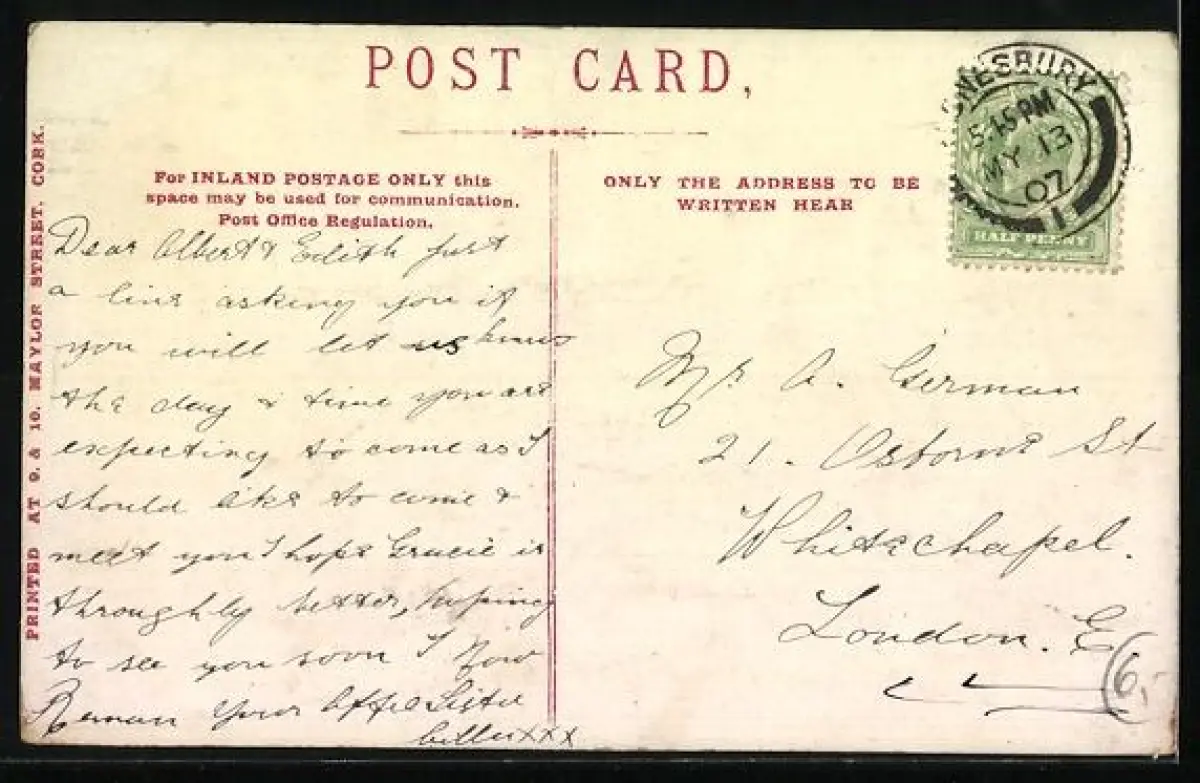 POST CARD,
PRINTED AT 9. & 10. MAYLOR STREET. CORK.
For INLAND POSTAGE ONLY this
space may be used for communication.
Post Office Regulation.
ONLY THE ADDRESS TO BE
WRITTEN HEAR
NESBURY
5.15 PM
MY 13
07
1
HALF PENNY
Dear Albert & Edith just
a line asking you if
you will let us know
the day & time you are
expecting to come as I
should like to come &
meet you I hope Gracie is
throughly better, hoping
to see you soon I Now
Reman Your Affe Sister
xxx
Mr A. German
21. Osborne St
Whitechapel.
London. E
6,